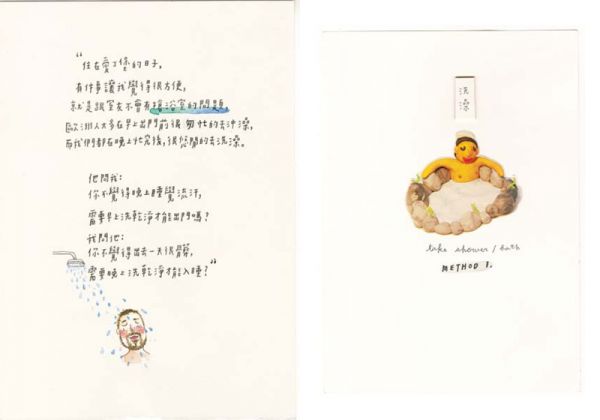 “住在愛丁堡的日子,
有件事讓我覺得很方便,
就是跟室友不會有搶浴室的問題,
歐洲人大多在早上出門前很匆忙的去沖澡,
而我們都在晚上忙完後,很悠閒的去洗澡。
他問我:
你不覺得晚上睡覺流汗,
需要早上洗乾淨才能出門嗎?
我問他:
你不覺得出去一天很髒,
需要晚上洗乾淨才能入睡?”
洗澡
take shower/bath
METHOD 1.